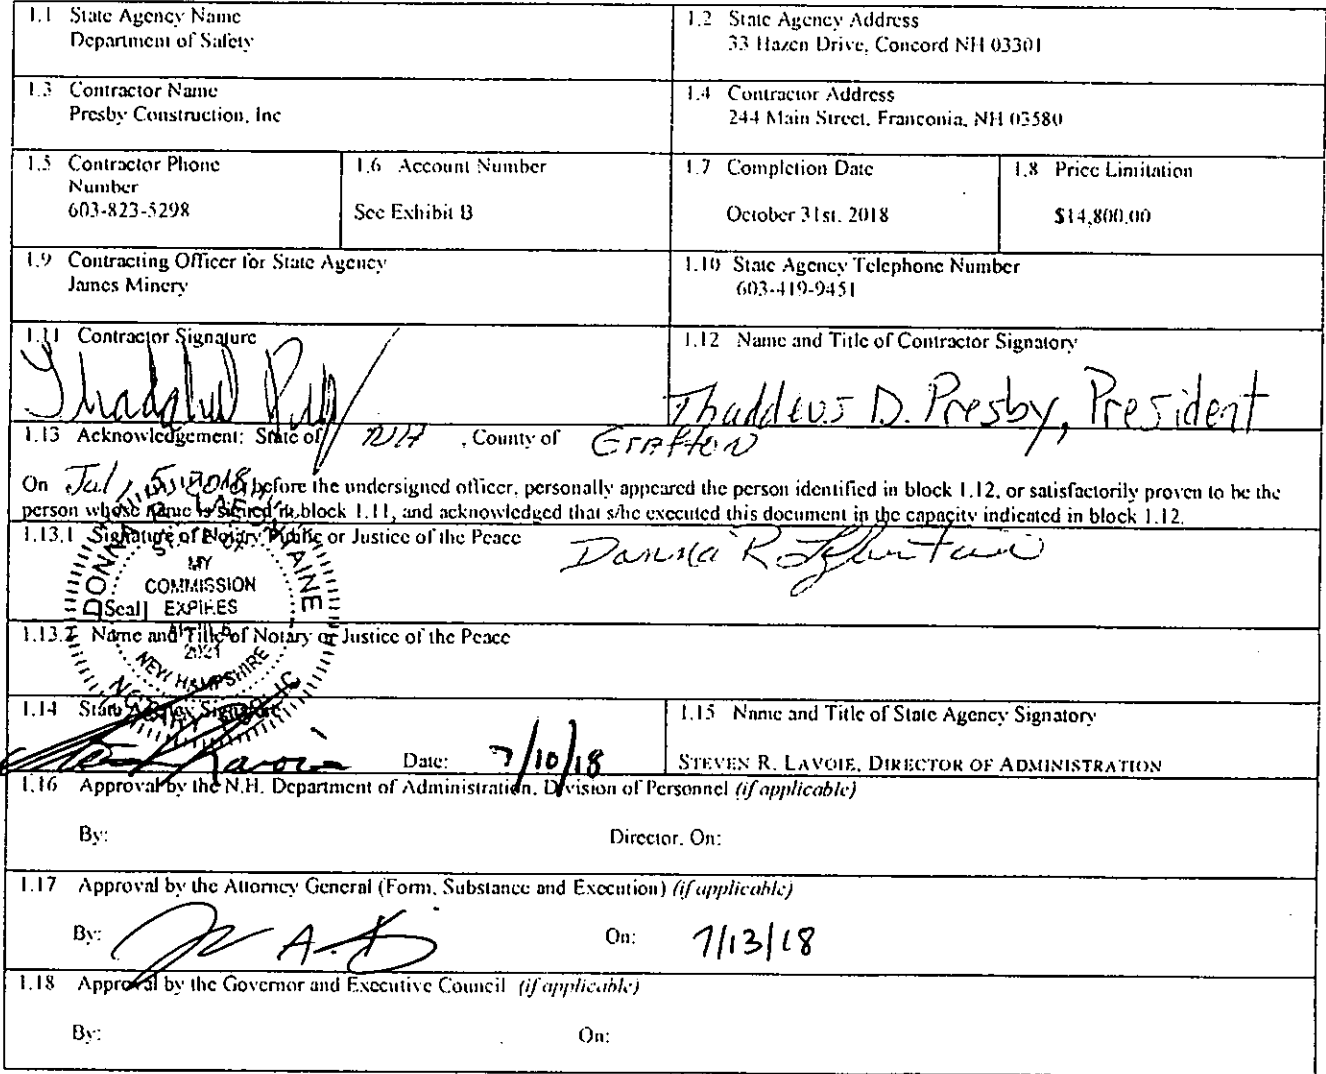 1.1 State Agency Name
Department of Safety
1.2 State Agency Address
33 Hazen Drive, Concord NH 03301
1.3 Contractor Name
Presby Construction, Inc
1.4 Contractor Address
244 Main Street, Franconia, NH 03580
1.5 Contractor Phone
Number
603-823-5298
1.6 Account Number
See Exhibit B
1.7 Completion Date
October 31st, 2018
1.8 Price Limitation
$14,800.00
1.9 Contracting Officer for State Agency
James Minery
1.10 State Agency Telephone Number
603-419-9451
1.11 Contractor Signature
1.12 Name and Title of Contractor Signatory
Thaddeus D. Presby, President
1.13 Acknowledgement: State of NH , County of Grafton
On July 5, 2018, before the undersigned officer, personally appeared the person identified in block 1.12, or satisfactorily proven to be the
person whose name is signed in block 1.11, and acknowledged that s/he executed this document in the capacity indicated in block 1.12.
1.13.1 Signature of Notary Public or Justice of the Peace
Donna R
DONNA
STATE OF
MY
COMMISSION
[Seal] EXPIRES
2021
NEW HAMPSHIRE
NOTARY PUBLIC
1.13.2 Name and Title of Notary or Justice of the Peace
1.14 State Agency Signature
Steven Lavoie Date: 7/10/18
1.15 Name and Title of State Agency Signatory
STEVEN R. LAVOIE, DIRECTOR OF ADMINISTRATION
1.16 Approval by the N.H. Department of Administration, Division of Personnel (if applicable)
By: Director, On:
1.17 Approval by the Attorney General (Form, Substance and Execution) (if applicable)
By: On: 7/13/18
1.18 Approval by the Governor and Executive Council (if applicable)
By: On: